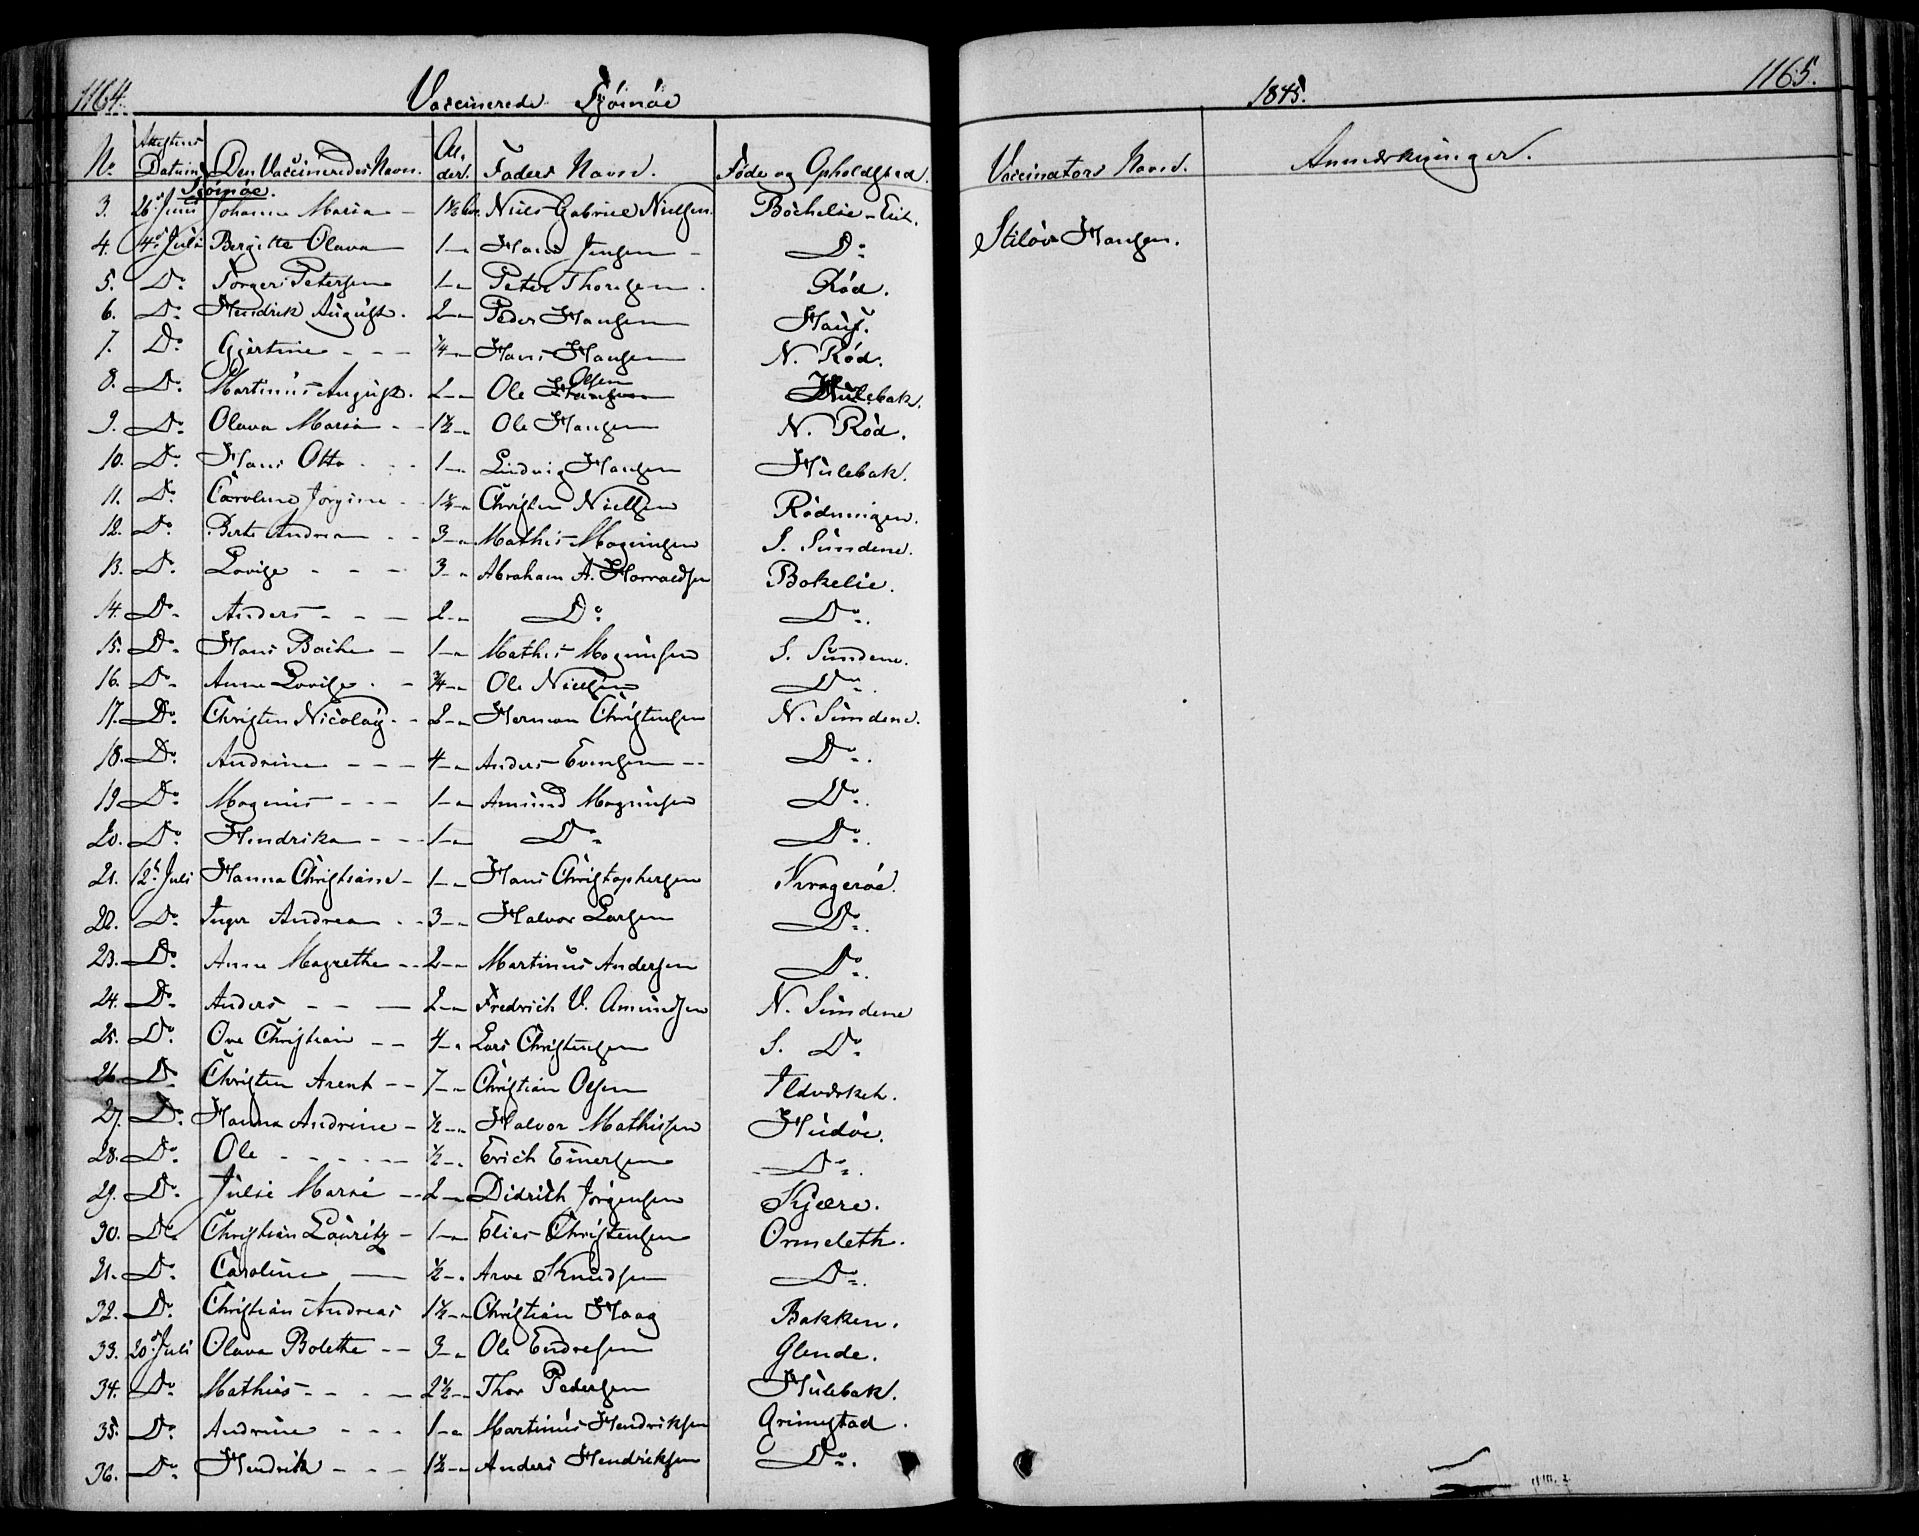 1164. Vaccinerede Tjömöe 1845. 1165.
No. Attestens Datum Den Vaccineredes Navn. Alder. Faders Navn. Föde og Opholdsted. Vaccinators Navn. Anmærkninger.
Tjömöe.
3. 26d Juni Johanne Maria - 1½ Niels Gabriel Nielsen. Böchelie - Eie.
4. 4d Juli Bergitte Olava 1 - Hans Jensen - Do Stilöv Hansen.
5. Do Torger Petersen 1 - Peter Thoresen. Röd.
6. Do Hendrik August. 2 - Peder Hansen Haug.
7. Do Gjertine - - - ¼ - Hans Hansen N. Röd.
8. Do Martinus August. 2 - Ole Hansen Olsen Hulebak.
9. Do Olava Maria - - 1½ - Ole Hansen N. Röd.
10. Do Hans Otto - - 1 - Ludvig Hansen Hulebak.
11. Do Caroline Jörgine - 1½ - Christen Nielsen Rödningen.
12. Do Berte Andrea - - 3 - Mathis Magnusen S. Sundene.
13. Do Lovise - - - 3 - Abraham A. Horraldsen Bokelie.
14. Do Anders - - - 2 - Do Do.
15. Do Hans Bache - 1 - Mathis Magnusen S. Sundene.
16. Do Anne Lovise. - ¾ - Ole Nielsen Do.
17. Do Christen Nicolay - - 2 - Herman Christensen N. Sundene.
18. Do Andrine - - - 4 - Anders Evensen - - Do.
19 Do Magnus - - - 1 - Amund Magnusen Do.
20. Do Hendrika - - 1 - Do Do.
21. 12t Juli Hanna Christiane - 1 - Hans Christophersen Krageröe.
22. Do Inger Andrea - - 3 - Halvor Larsen Do.
23. Do Anne Magrethe - - 2 - Martinus Andersen Do.
24. Do Anders - - - 2 - Fredrich V. Amundsen N. Sundene
25. Do Ove Christian - - 4 - Lars Christensen S. Do
26 Do Christen Arent - - 7 - Christian Olsen Ildværket.
27. Do Hanna Andrine - ½ - Halvor Mathisen Hudöe.
28. Do Ole - - - - - ½ - Erich Einersen Do.
29. Do Julie Marie - - 2 - Didrich Jörgensen Kjære.
30. Do Christian Lauritz - 1 - Elias Christensen Ormeleth.
21. Do Caroline - ½ - Arve Knudsen Do.
32. Do Christian Andreas 1½ - Christian Haag Bakken.
33. 20d Juli Olava Bolette - - 3 - Ole Endresen Glende.
34. Do Mathias - - - 2½ - Thor Pedersen Hulebak.
35. Do Andrine - - - 1 - Martinus Hendriksen Grimstad.
36. Do Hendrik - - - 1½ - Anders Hendriksen Do.